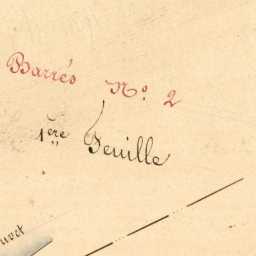 Barrés No. 2
1ère Feuille